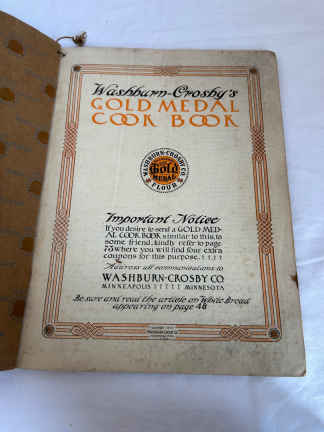 Washburn-Crosby's
GOLD MEDAL
COOK BOOK
WASHBURN-CROSBY CO.
Gold
MEDAL
FLOUR
Important Notice
If you desire to send a GOLD MED-
AL COOK BOOK similar to this, to
some friend, kindly refer to page
75 where you will find four extra
coupons for this purpose.
Address all communications to
WASHBURN-CROSBY CO.
MINNEAPOLIS MINNESOTA
Be sure and read the article on White Bread
appearing on page 48